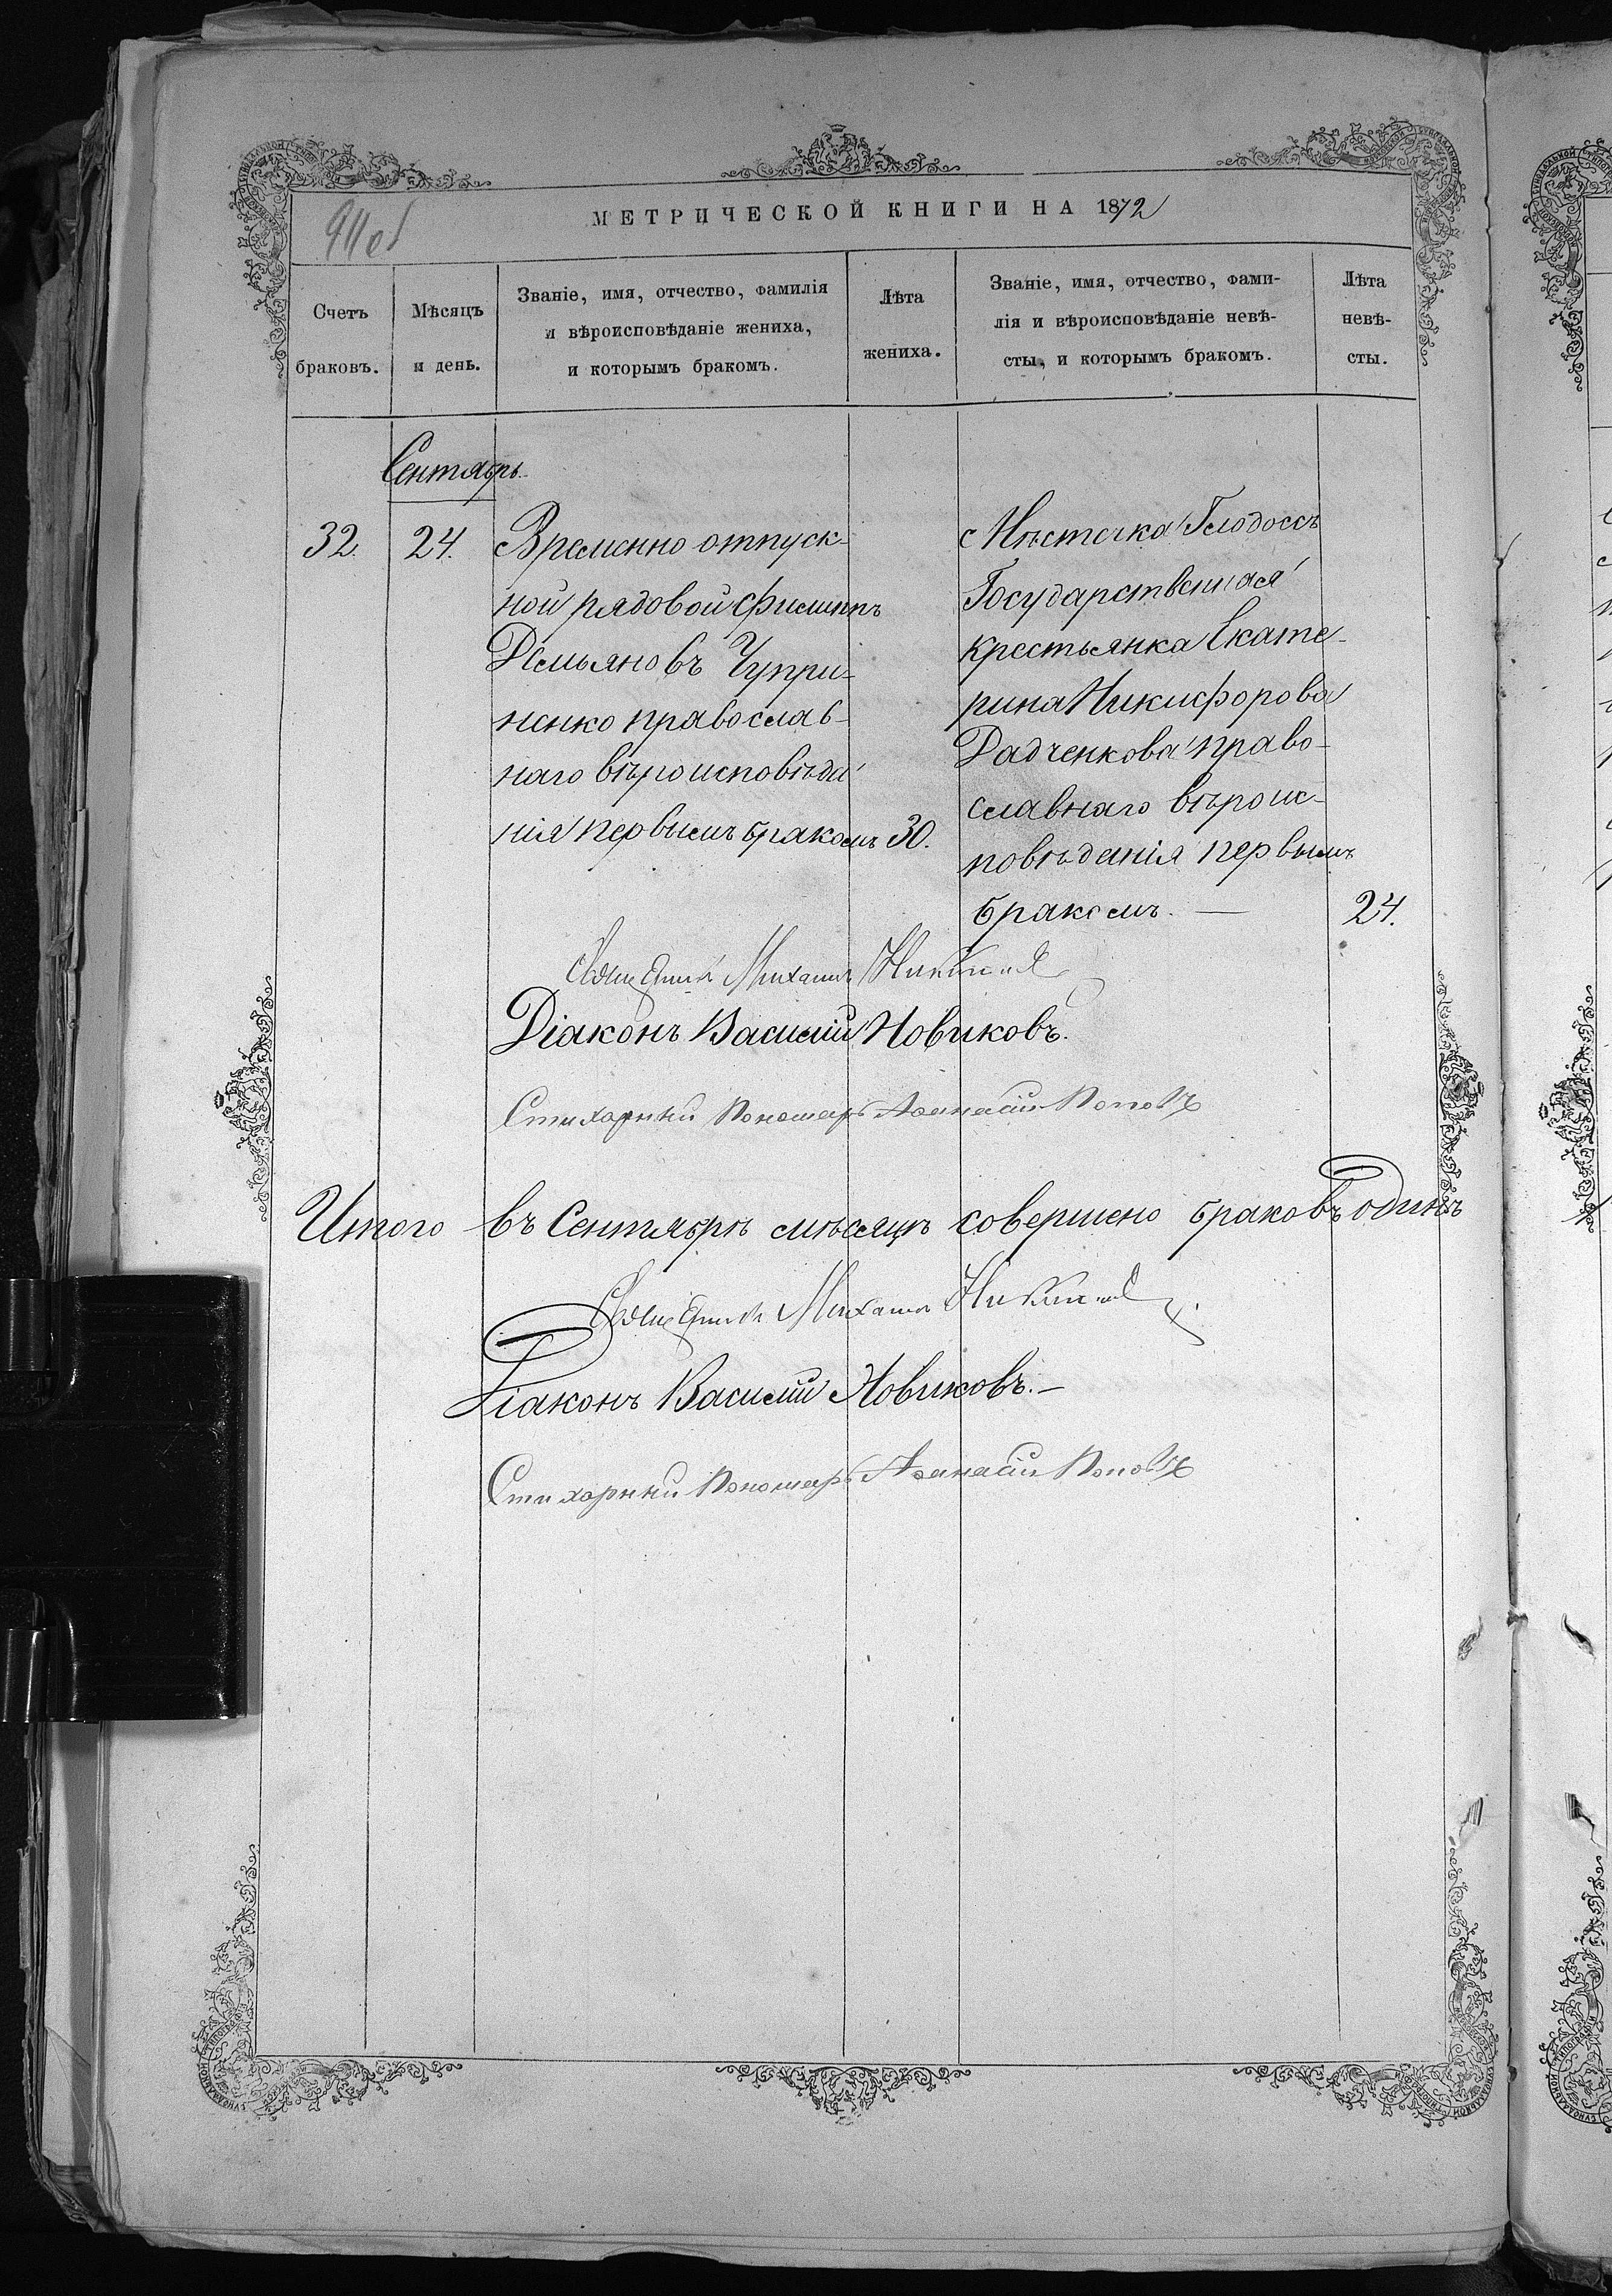 МЕТРИЧЕСКОЙ КНИГИ НА 1872
Счетъ браковъ.
Мѣсяцъ и день.
Званіе, имя, отчество, фамилія
и вѣроисповѣданіе жениха,
и которымъ бракомъ.
Лѣта жениха.
Званіе, имя, отчество, фами-
лія и вѣроисповѣданіе невѣ-
сты, и которымъ бракомъ.
Лѣта невѣ-
сты.
Сентябрь
32.
24.
Временно отпуск-
ной рядовой Филиппъ
Демьяновъ Чупри-
ненко православ-
наго вѣроисповѣда
нія первымъ бракомъ
30.
Мѣстечка Глодоссъ
Государственная
крестьянка Екате-
рина Никифорова
Радченкова право-
славнаго вѣроис-
повѣданія первымъ
бракомъ. —
24.
Священникъ Михаилъ
Діаконъ Василий Новиковъ.
Стихарный Пономарь Аѳанасій Поповъ
Итого въ Сентябрѣ мѣсяцѣ совершено браковъ одинъ
Священникъ Михаилъ
Діаконъ Василий Новиковъ.—
Стихарный Пономарь Аѳанасій Поповъ